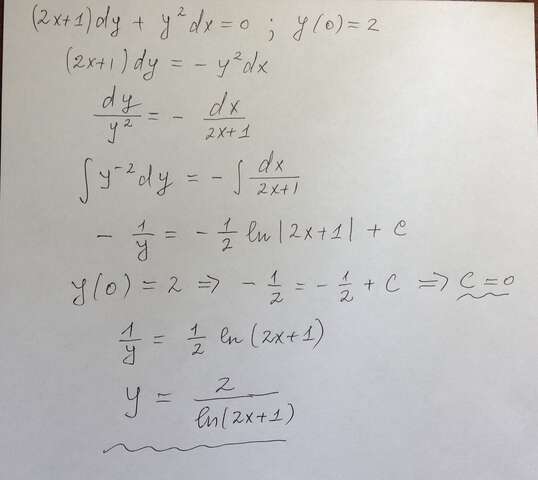 (2x+1)dy + y²dx=0 ; y(0)=2
(2x+1)dy = - y²dx
dy/y² = - dx/2x+1
∫y⁻²dy = -∫dx/2x+1
- 1/y = - 1/2 ln|2x+1| + C
y(0)=2 ⇒ - 1/2 = - 1/2 + C ⇒ C=0
1/y = 1/2 ln(2x+1)
y = 2/ln(2x+1)